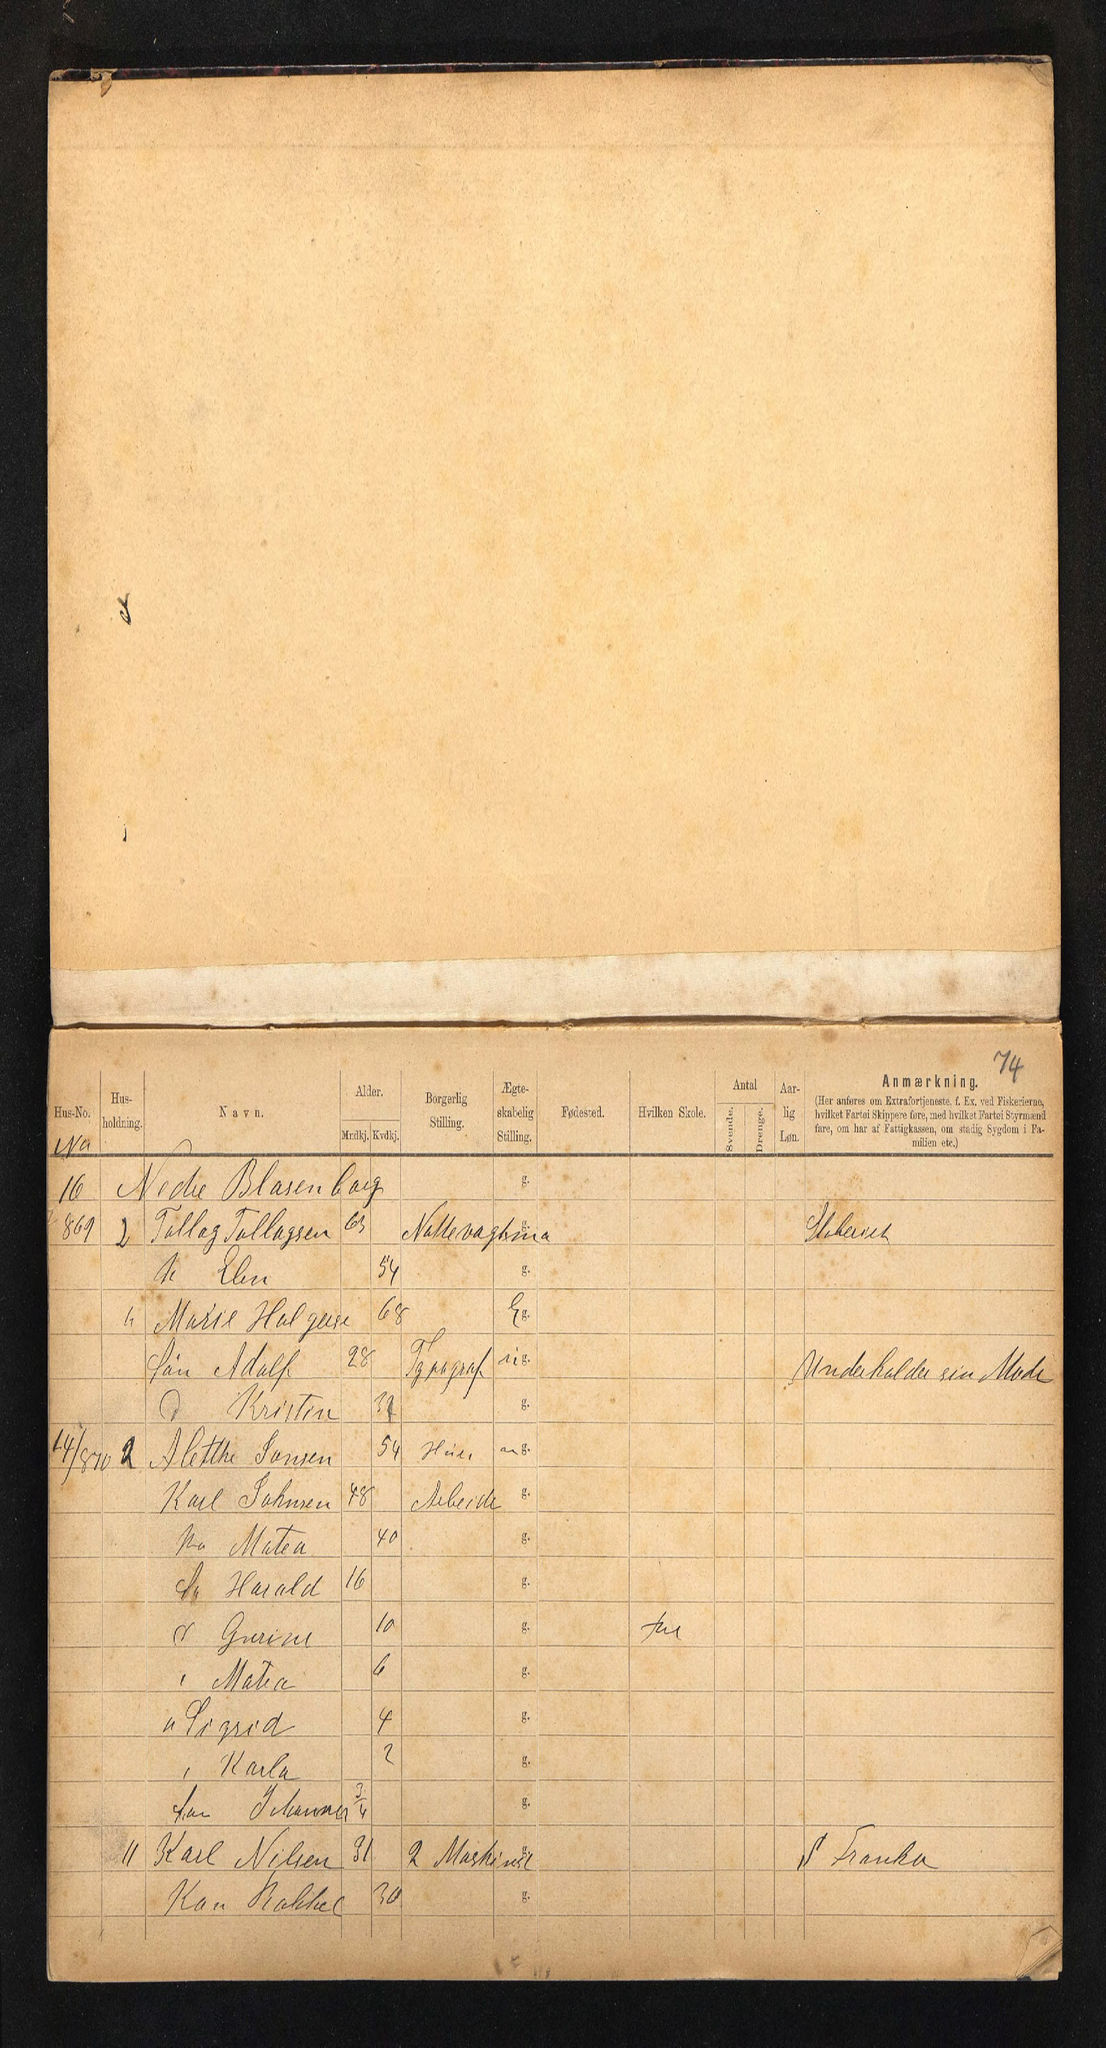 74
Hus-No. Hus-holdning. Navn. Alder. Mndkj. Kvdkj. Borgerlig Stilling. Ægte-skabelig Stilling. Fødested. Hvilken Skole. Antal Svende. Drenge. Aar-lig Løn. Anmærkning.
(Her anføres om Extrafortjeneste. f. Ex. ved Fiskerierne, hvilket Fartøi Skippere føre, med hvilket Fartøi Styrmænd fare, om har af Fattigkassen, om stadig Sygdom i Familien etc.)
No
16 Nedre Blasenborg g.
869 2 Tallag Tallagsen 63 Nattevagtma g.
K Elen 54 g.
" Marie Halgerse 68 E g.
Søn Adolf 28 Typograf ug. Underholder sin Mode
D Kristin 31 g.
14/870 2 Alethe Jansen 54 ug.
Karl Johnsen 48 Arbeide g.
Ko Matea 40 g.
Sø Harald 16 g.
d Gurine 10 g.
" Matea 6 g.
" Sigrid 4 g.
" Karla 2 g.
Søn Johannes 3/4 g.
" Karl Nilsen 31 2 Maskinst g. S Franka
Kon Rakkel 30 g.